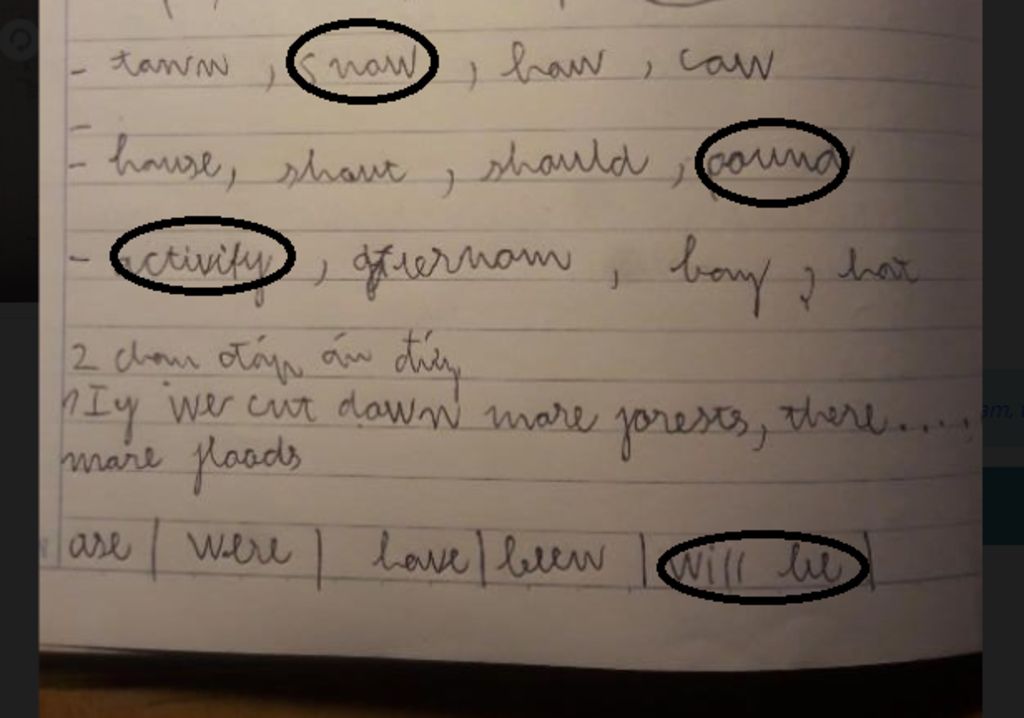 - town, snow, how, cow
- house, shout, should, pound
- activify, afternoon, bay, hat
2 chọn đáp án đúng
1 If we cut down more forests, there.....
more floods
are | were | have | been | will be |